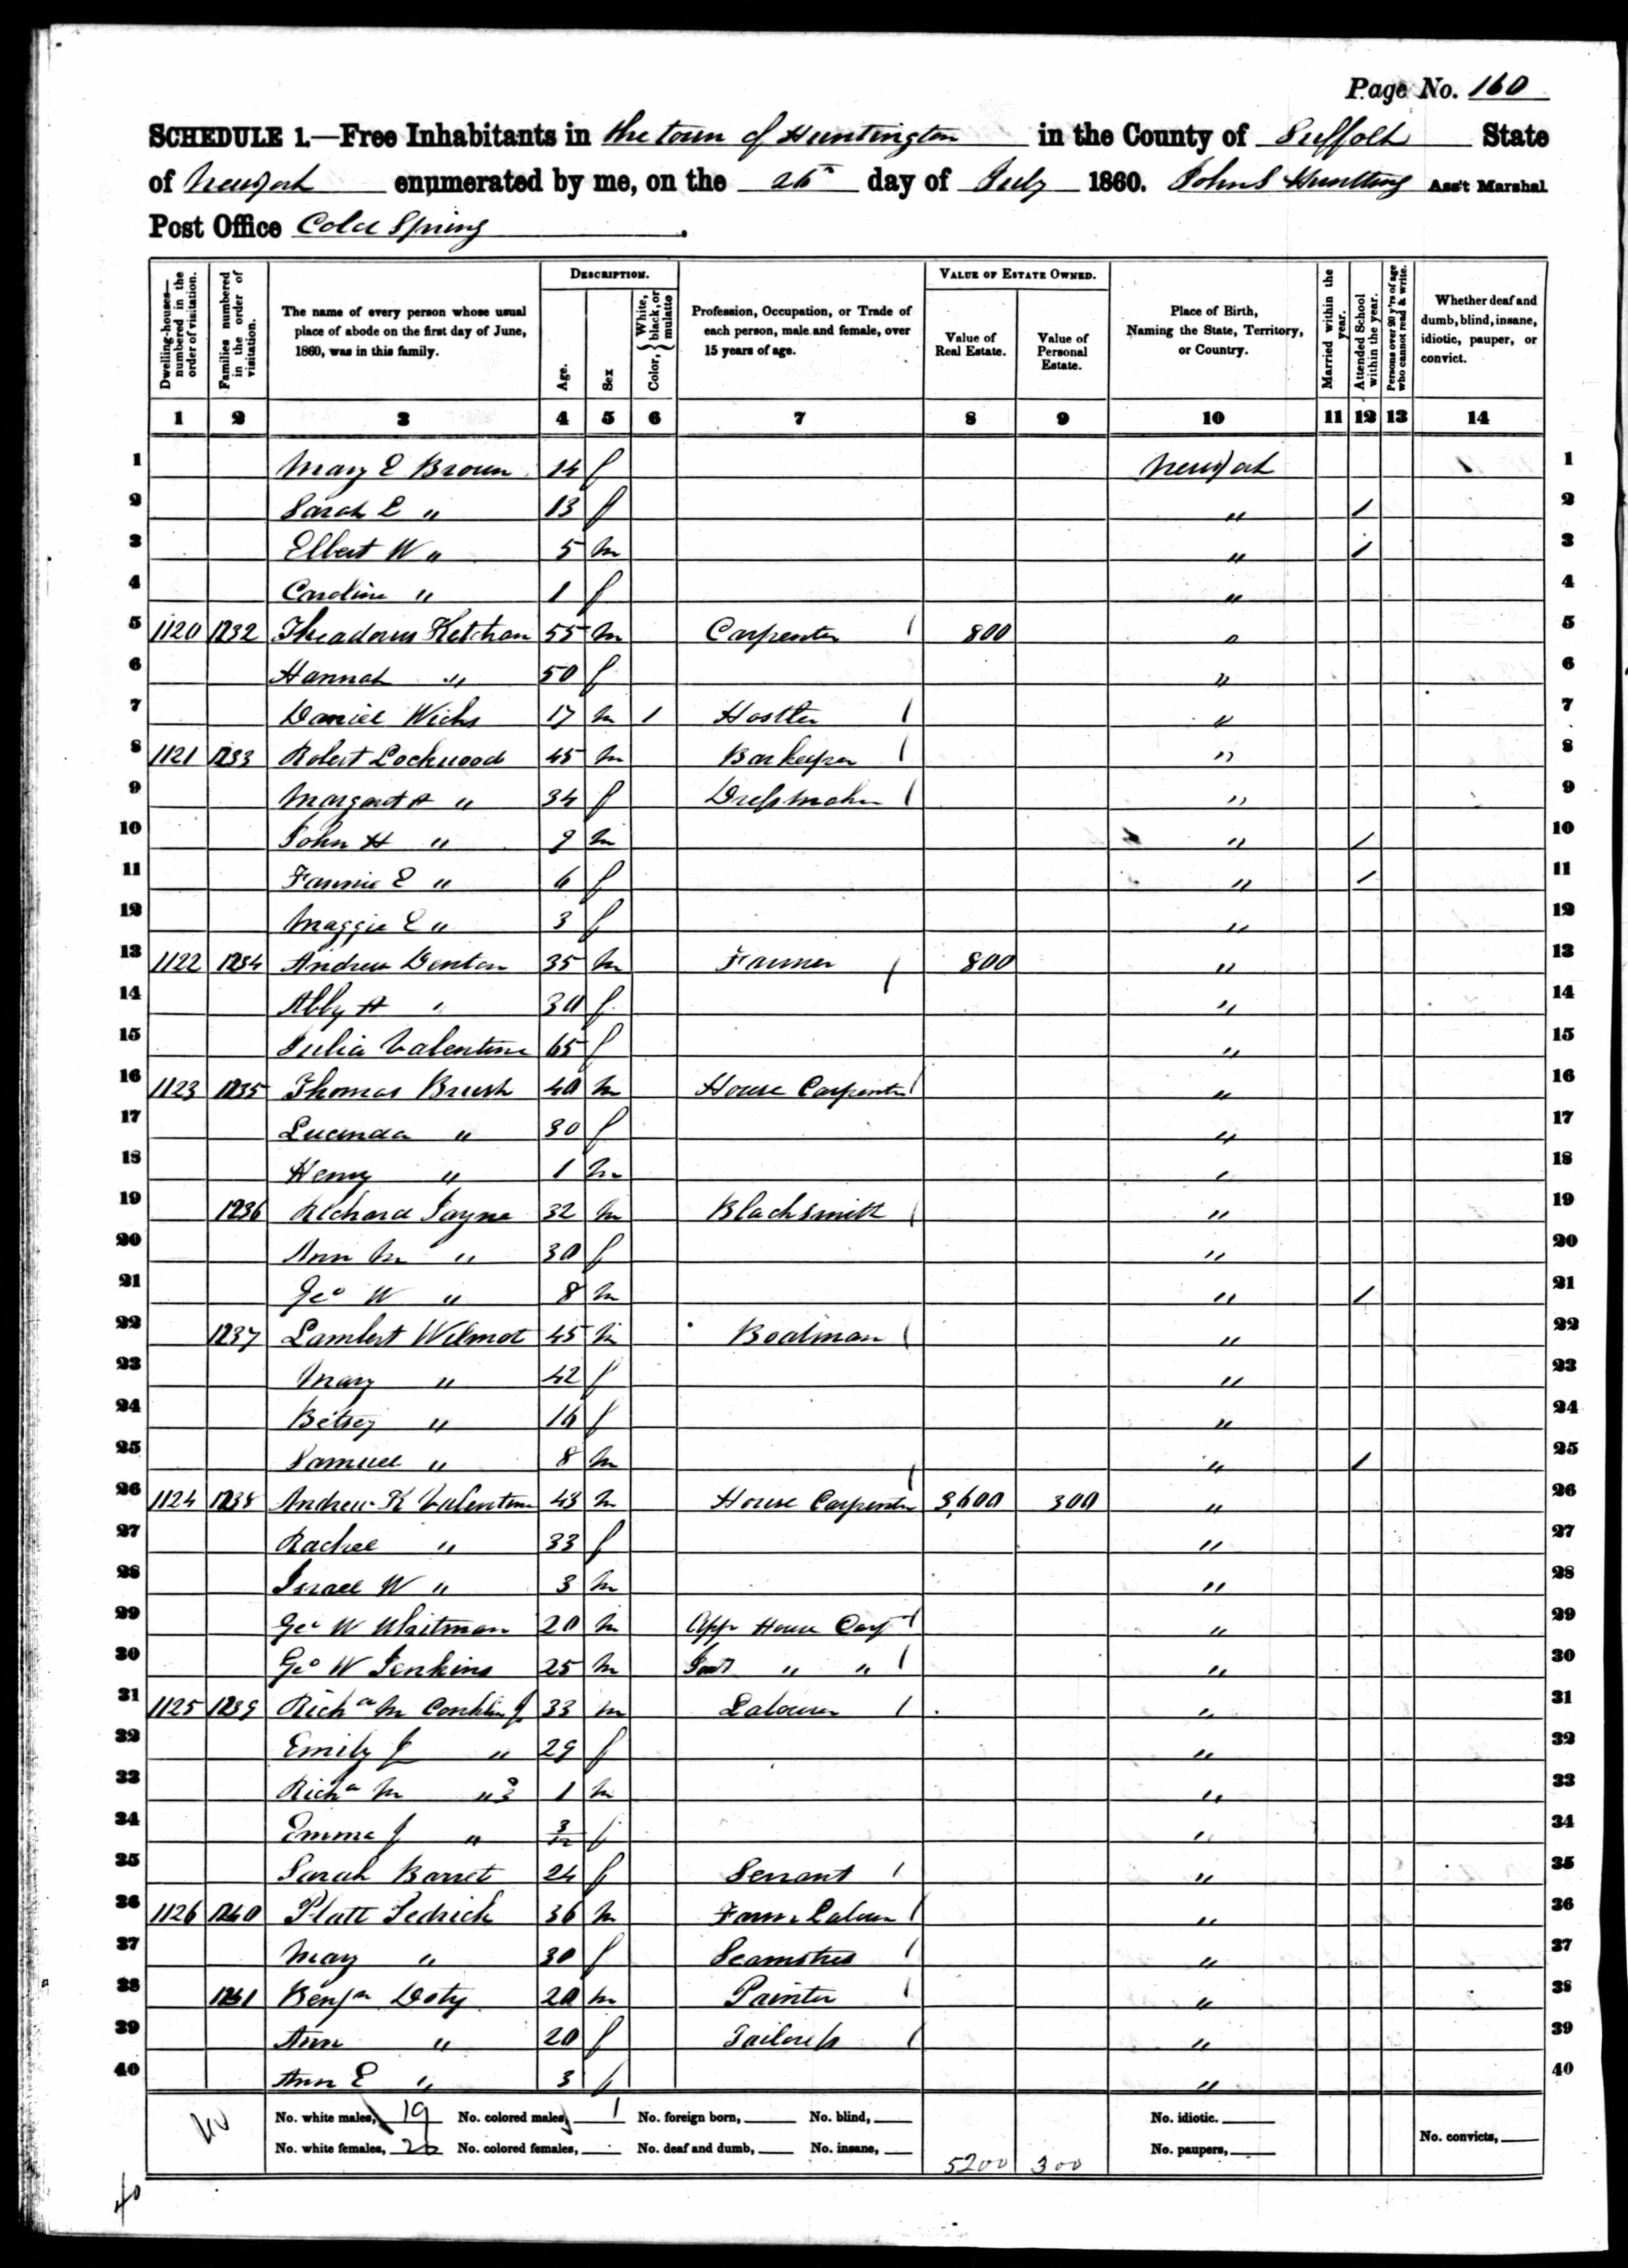 Page No. 160
SCHEDULE 1.—Free Inhabitants in the town of Huntington in the County of Suffolk State
of New York enumerated by me, on the 26th day of July 1860. John S Huntting Ass't Marshal
Post Office Cold Spring.
Dwelling-houses—numbered in the order of visitation.
Families numbered in the order of visitation.
The name of every person whose usual place of abode on the first day of June, 1860, was in this family.
DESCRIPTION.
Age.
Sex
Color, { White, black, or mulatto
Profession, Occupation, or Trade of each person, male and female, over 15 years of age.
VALUE OF ESTATE OWNED.
Value of Real Estate.
Value of Personal Estate.
Place of Birth, Naming the State, Territory, or Country.
Married within the year.
Attended School within the year.
Persons over 20 y'rs of age who cannot read & write.
Whether deaf and dumb, blind, insane, idiotic, pauper, or convict.
1 2 3 4 5 6 7 8 9 10 11 12 13 14
1 Mary E Brown 14 f New York 1
2 Sarah E " 13 f " / 2
3 Elbert W " 5 m " / 3
4 Caroline " 1 f " 4
5 1120 1232 Theadorus Ketchan 55 m Carpenter / 800 " 5
6 Hannah " 50 f " 6
7 Daniel Wicks 17 m 1 Hostler / " 7
8 1121 1233 Robert Lockwood 45 m Barkeeper / " 8
9 Margaret A " 34 f Dressmaker / " 9
10 John H " 9 m " / 10
11 Fannie E " 6 f " / 11
12 Maggie E " 3 f " 12
13 1122 1234 Andrew Denton 35 m Farmer / 800 " 13
14 Abby A " 30 f " 14
15 Julia Valentine 65 f " 15
16 1123 1235 Thomas Brush 40 m House Carpenter / " 16
17 Lucinda " 30 f " 17
18 Henry " 1 m " 18
19 1236 Richard Jayne 32 m Blacksmith / " 19
20 Ann M " 30 f " 20
21 Geo W " 8 m " / 21
22 1237 Lambert Wilmot 45 m Boatman / " 22
23 Mary " 42 f " 23
24 Betsey " 16 f " 24
25 Samuel " 8 m " / 25
26 1124 1238 Andrew K Valentine 43 m House Carpenter / 3,600 300 " 26
27 Rachel " 33 f " 27
28 Israel W " 3 m " 28
29 Geo W Whitman 20 m App House Carp / " 29
30 Geo W Jenkins 25 m " " / " 30
31 1125 1239 Richd M Conklin Jr 33 m Labourer / " 31
32 Emily J " 29 f " 32
33 Richd M " 3 1 m " 33
34 Emma J " 3/12 f " 34
35 Sarah Barret 24 f Servant / " 35
36 1126 1240 Platt Pedrick 36 m Farm Labour / " 36
37 Mary " 30 f Seamstress / " 37
38 1241 Benjn Doty 20 m Painter / " 38
39 Ann " 20 f Tailoress / " 39
40 Ann E " 3 f " 40
No. white males, 19 No. colored males, 1 No. foreign born, No. blind, No. idiotic.
No. white females, 20 No. colored females, No. deaf and dumb, No. insane, 5200 300 No. paupers, No. convicts,
40